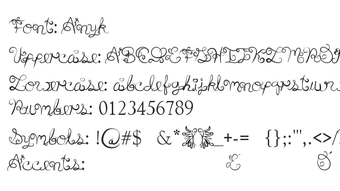 Font: Anyk
Uppercase: ABCDEFGHIJKLMNOPQ
Lowercase: abcdefghijklmnopqrstuvw
Numbers: 0123456789
Symbols: !@#$ &* _+-= {};:"',.<>/
Accents: É Ó